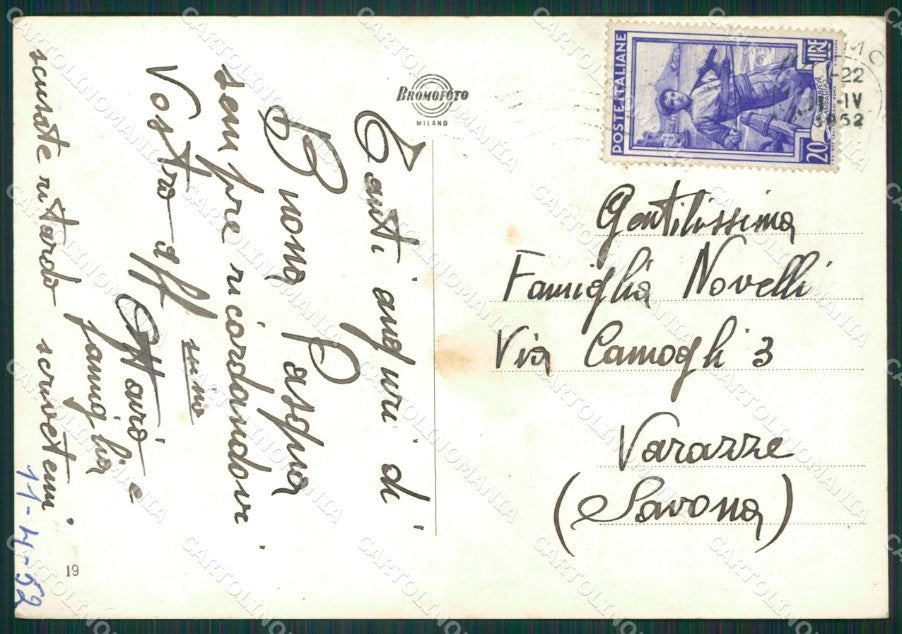 Tanti auguri di
Buona Pasqua
sempre ricordandovi.
Vostro aff mo
Ottavio e
famiglia
scusate ritardo scrivetemi.
11-4-52
19
BROMOFOTO
MILANO
POSTE ITALIANE
20 LIRE
-22
IV
1952
Gentilissima
Famiglia Novelli
Via Camogli 3
Varazze
(Savona)
CARTOLINOMANIA